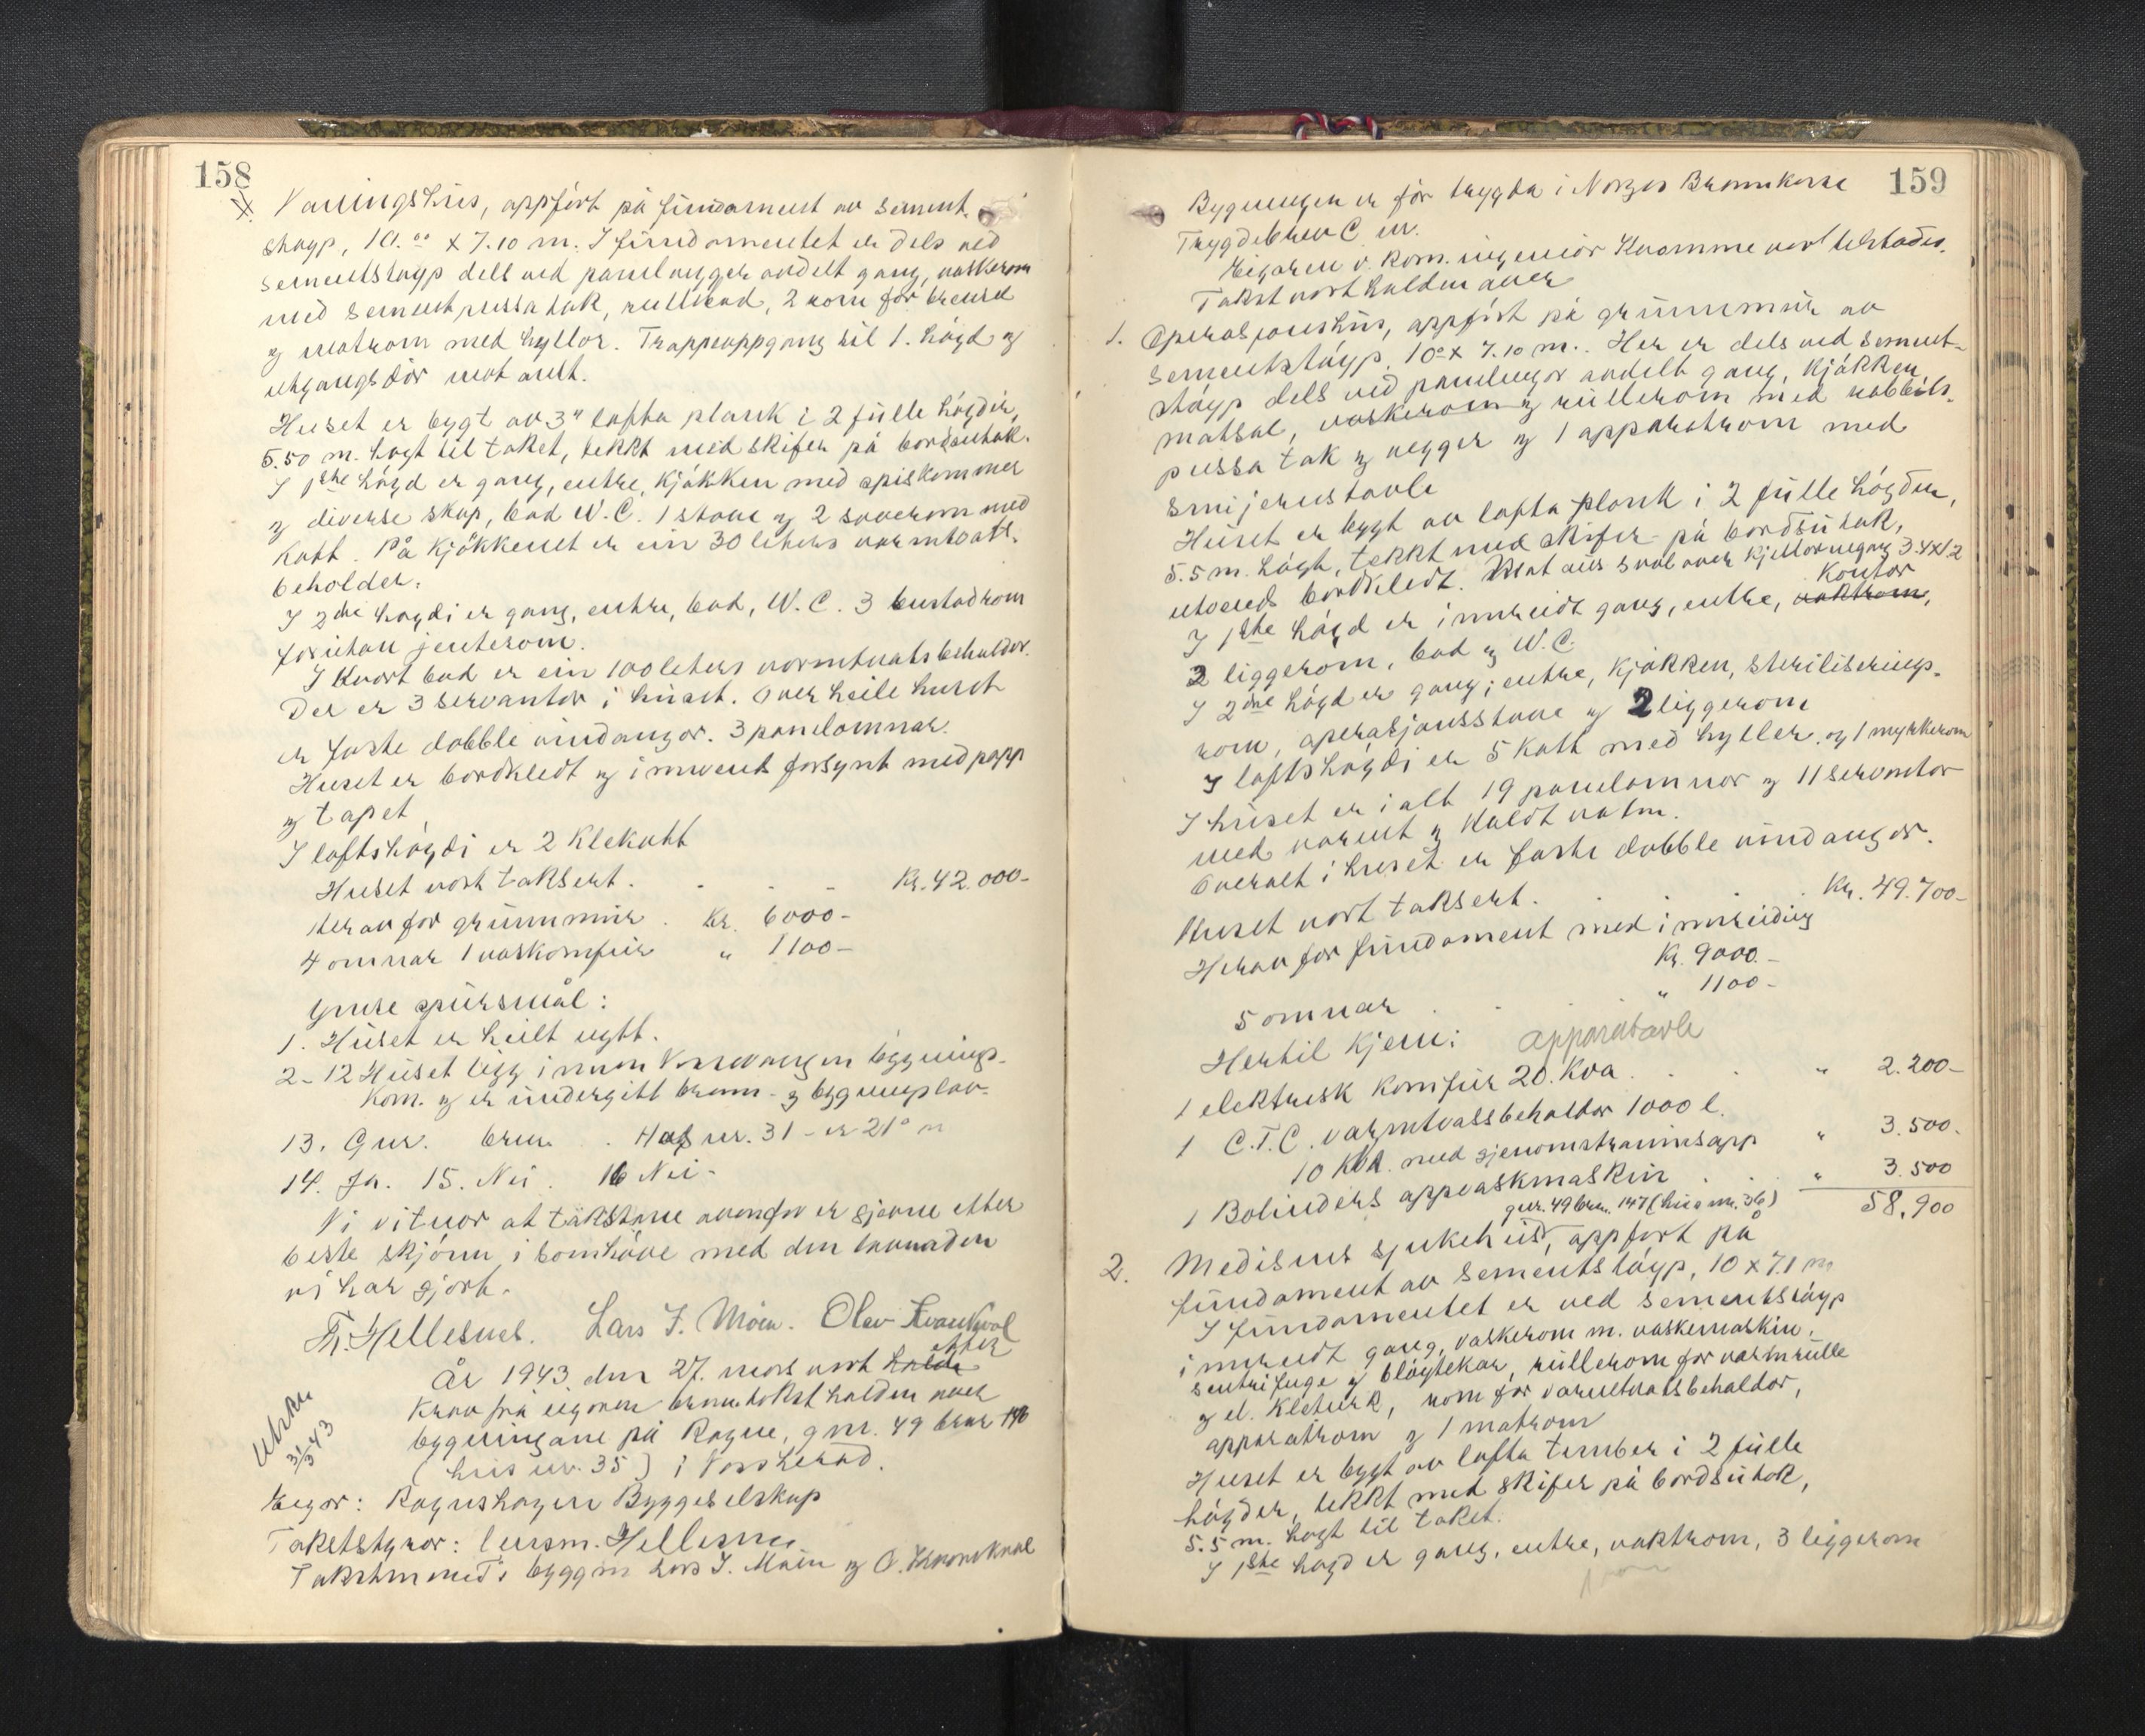 158
Vaaningshus, appført på fundament av sement-
støyp, 10.00 x 7.10 m. I fundamentet er dels ved
sementstøyp dels ved panelvegger avdelt gang, vaskerom
med sementpussa tak, rullbod, 2 rom for brensel
og matrom med hyllor. Trappeoppgang til 1. høgd og
utgangsdør mot aust.
Huset er bygt av 3" lafta plank i 2 fulle høgdir,
5.50 m. høgt til taket, tekkt med skifer på bordsutak.
I 1ste høgd er gang, entre, kjøkken med spiskammer
og diverse skap, bad W.C. 1 stove og 2 soverom med
kott. På kjøkkenet er ein 30 liters varmtvatt-
beholder.
I 2dre høgdi er gang, entre, bad, W.C. 3 bustadrom
forutan jenterom.
I kvart bad er ein 100 liters varmtvatsbehaldar.
Der er 3 servantor i huset. Over heile huset
er faste dobble vindaugor. 3 panelomnar.
Huset er bordkledt og innvendt forsynt med papp
og tapet
I loftshøgdi er 2 klekott
Huset vort taksert . - - - Kr. 42.000-
Herav for grunnmur . Kr. 6000-
4 omnar 1 vaskomfur " 1100-
Ymse spursmål:
1. Huset er heilt nytt.
2-12 Huset ligg innan Vossevangen bygnings-
kom. og er undergitt brann- og bygningslov-
13. Gnr. brnr. . Hus nr. 31 -
14. Ja. 15. Nei. 16 Nei-
Vi vitnar at takstane ovanfor er gjevne etter
beste skjønn i samhøve med den
vi har gjort.
Th. Hellesnes. Lars J. Møen. Olav Kvankval
etter
År 1943 den 27. mars vart halde
krav frå eigaren branntakst halden over
bygningane på Rogne, gnr. 49 brnr 146
(hus nr. 35) i Vossherad.
31/3 43
Eigar: Rognshagen Byggeselskap
Takststyrar: lensm. Hellesnes
Takstmenn: byggm Lars J. Møen og O. Kvankval
159
Bygningen er før trygda i Norges Brannkasse
Trygdebrev C nr.
Eigaren v. kom. ingeniør Kvamme var tilstades.
Takst vart halden over
1. Operasjonshus, appført på grunnmur av
sementstøyp 10.0 x 7.10 m. Her er dels ved sement-
støyp dels ved panelvegger avdelt gang, kjøkken,
matsal, vaskerom og rullerom med rabbits-
pussa tak og vegger og 1 apparatrom med
smijernstavle
Huset er bygt av lafta plank i 2 fulle høgder,
5.5 m. høgt, tekkt med skifer på bordsutak,
utvendes bordkledt. Mot aus sval over kjellarnegang 3.4x1.2
kontor
I 1ste høgd er innreidt gang, entre, vaktrom,
3 liggerom, bad og W.C.
I 2dre høgd er gang, entre, kjøkken, steriliserings-
rom, operasjonsstove og 2 liggerom
I loftshøgdi er 5 kott med hyller og 1 myrkerom
I huset er i alt 19 panelomnar og 11 servantar
med varmt og kaldt vatn.
Overalt i huset er faste dobble vindaugor.
Huset vort taksert. . . Kr. 49.700-
Herav for fundament med innreiding
Kr. 9000.-
5 omnar . . " 1100-
Hertil kjem: apparatavle
1 elektrisk komfur 20. Kva . . " 2.200-
1 C.T.C. varmtvassbehaldar 1000 l.
10 KVA. med gjenomstrømsapp " 3.500.
1 Bolinders oppvaskmaskin . . " 3.500
gnr. 49 brn. 147 (hus nr. 36) 58.900
2. Medisins sjukehus, appført på
fundament av sementstøyp, 10 x 7.1 m
I fundamentet er ved sementstøyp
innreidt gang, vaskerom m. vaskemaskin,
sentrifuge og bløytekar, rullerom for varmrulle
og el. kleturk, rom for varmtvatsbehaldar,
apparatrom og 1 matrom
Huset er bygt av lafta tember i 2 fulle
høgder, tekkt med skifer på bordsutak,
5.5 m. høgt til taket.
I 1ste høgd er gang, entre, vaktrom, 3 liggerom